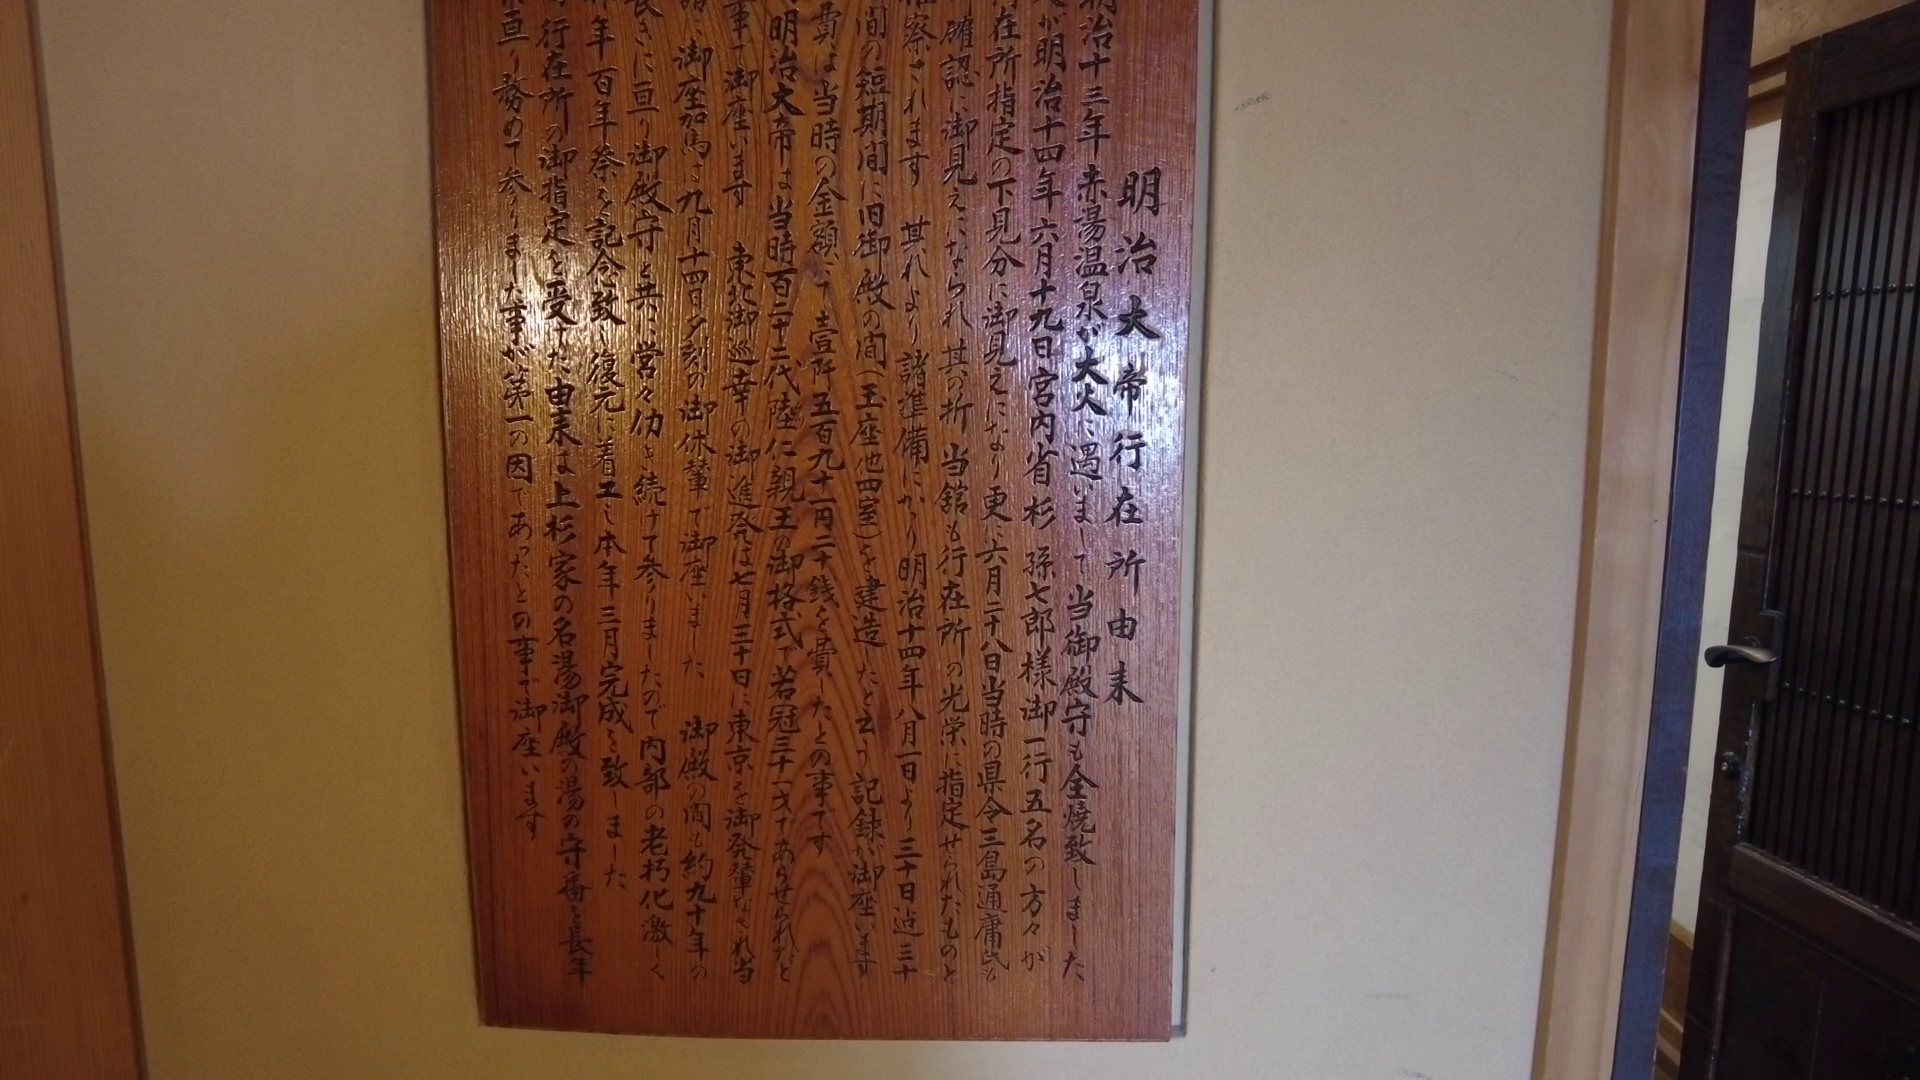 明治大帝行在所由来
明治十三年 赤湯温泉が大火に遇いまして 当御殿守も全焼致しました
が明治十四年六月十九日宮内省杉 孫七郎様御一行五名の方々が
在所指定の下見分に御見えになり更に六月二十八日当時の県令三島通庸氏も
確認に御見えになられ 其の折 当舘も行在所の光栄に指定せられたものと
察されます 其れより諸準備にかゝり明治十四年八月一日より三十日迠三十
間の短期間に旧御殿の間(玉座他四室)を建造したと云う記録が御座います
費は当時の金額にて壹阡五百九十一円二十銭を費したとの事です
明治大帝は当時百二十二代陸仁親王の御格式で若冠三十一才であらせられたと
事で御座います 東北御巡幸の御進発は七月三十日に東京を御発輦なされ当
御座加馬は九月十四日夕刻の御休輦で御座いました 御殿の間も約九十年の
長きに亘り御殿守と共に営々仂き続けて参りましたので内部の老朽化激しく
年百年祭を記念致し復元に着工し本年三月完成を致しました
行在所の御指定を受けた由来は上杉家の名湯御殿の湯の守番を長年
亘り務めて参りました事が第一の因であったとの事で御座います